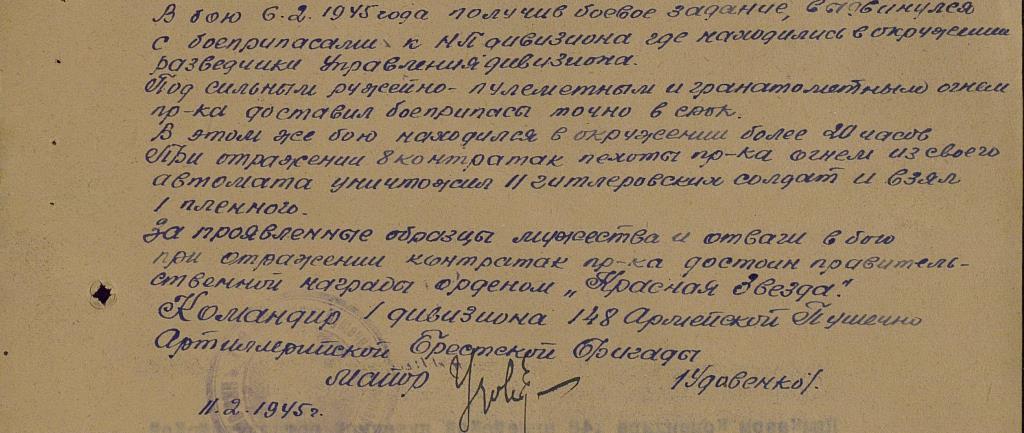 В бою 6.2.1945 года получив боевое задание, выдвинулся
с боеприпасами к НП дивизиона где находились в окружении
разведчики Управления дивизиона.
Под сильным ружейно-пулеметным и гранатометным огнем
пр-ка доставил боеприпасы точно в срок.
В этом же бою находился в окружении более 20 часов
При отражении 8 контратак пехоты пр-ка огнем из своего
автомата уничтожил 11 гитлеровских солдат и взял
1 пленного.
За проявленные образцы мужества и отваги в бою
при отражении контратак пр-ка достоин правитель-
ственной награды орденом „Красная Звезда".
Командир 1 дивизиона 148 Армейской Пушечно
Артиллерийской Брестской Бригады
Майор /Удовенко/.
11.2.1945г.